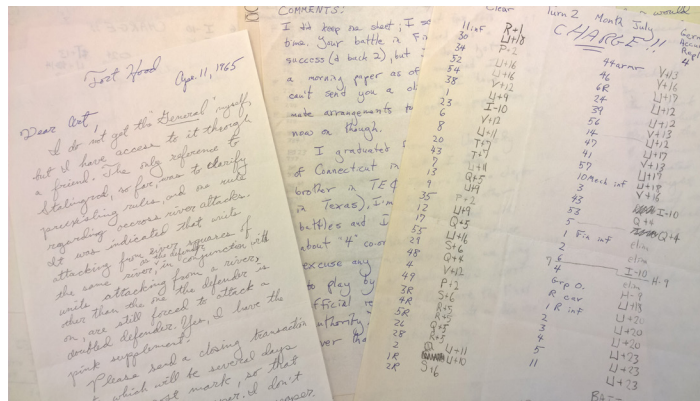 Fort Hood
Apr. 11, 1965
Dear Art,
I do not get the "General" myself,
but I have access to it through
a friend. The only reference to
Stalingrad, so far, was to clarify
preexisting rules, and one rule
regarding across river attacks.
It was indicated that units
attacking from river squares of
the same river, in conjunction with
as the defender
units attacking from a river,
ther than the one the defender is
on, are still forced to attack a
doubled defender. Yes, I have the
pink supplement.
Please send a closing transaction
which will be several days
mark, so that
I don't
COMMENTS:
I did keep no sheet; I
time. Your battle in
success (A back 2), but
a morning paper as of
can't send you a
make arrangements to
now on though.
I graduated
of Connecticut in
brother a
in Texas), I'm
battles and I
about "4"
excuse any
to play by
official
authority
over
Clear
11 inf R+1
30 U+18
34 P+2
52 U+16
54 U+16
38 V+12
1 U+9
23 I-10
6 V+12
8 U+11
20 T+7
43 T+7
7 U+11
13 Q+5
9 U+9
35 P+2
12 U+9
17 Q+5
55 U+16
29 S+6
48 Q+4
4 V+12
49 P+2
3R S+6
4R R+5
5R R+5
26 Q+5
28 R+5
2 U+11
1R U+10
2R S+6
Turn 2 Month July
CHARGE!!
44 armr V+13
46 V+16
6R U+17
24 U+12
39 U+12
56 V+13
14 U+12
47 U+17
41 V+13
57 U+17
10 Mech inf U+18
3 V+16
43 I-10
53 Q+4
5 Q+4
1 Fin inf elim
2 elim
6 I-10
4 H-9
Grp o. elim
R cav H-9
1 R inf U+18
2 U+20
3 U+20
4 U+23
5 U+23
11 U+23
would